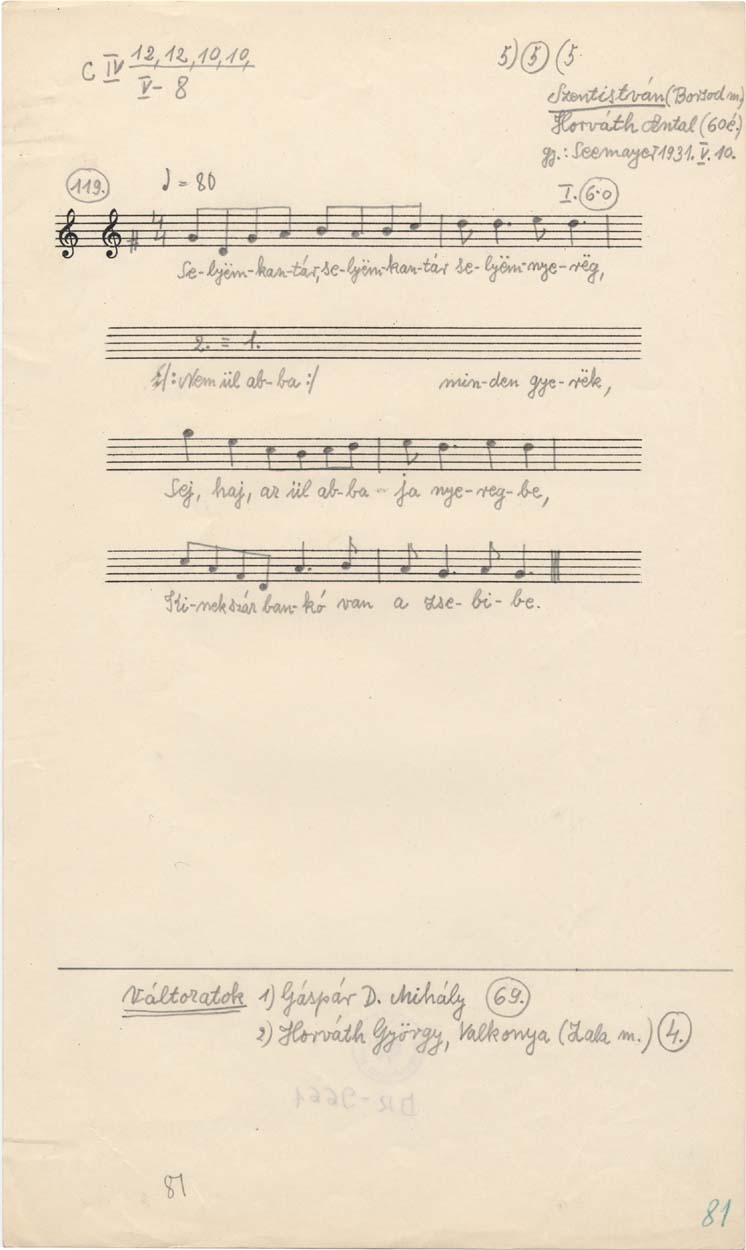 C IV 12, 12, 10, 10,
V - 8
5) 5 (5
Szentistván (Borsod m.)
Horváth Antal (60 é.)
gy.: Seemayer 1931. V. 10.
119.
♩ = 80
I. 6·0
4/4
Se-lyëm-kan-tár, se-lyëm-kan-tár se-lyëm-nye-rëg,
2. = 1.
/: Nem ül ab-ba :/ min-den gye-rëk,
Sej, haj, az ül ab-ba - ja nye-reg-be,
Ki-nek száz ban-kó van a zse-bi-be.
Változatok 1) Gáspár D. Mihály 69.
2) Horváth György, Valkonya (Zala m.) 4.
BR-9661
81
81